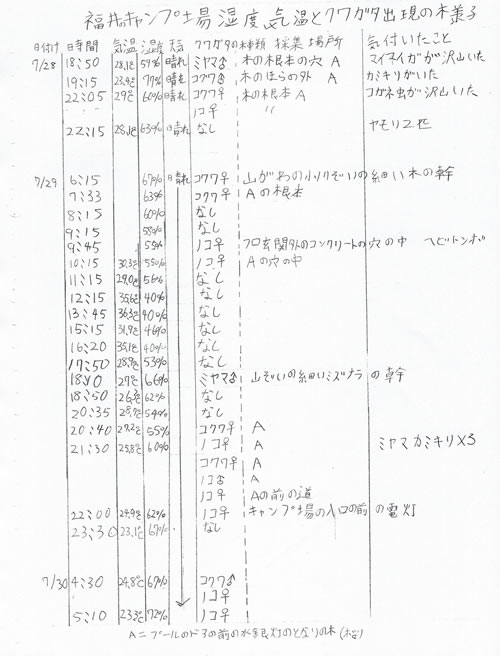 福井キャンプ場 湿度、気温とクワガタ出現の様子
日付け 時間 気温 湿度 天気 クワガタの種類 採集場所 気付いたこと
7/28 18:50 28.1℃ 59% 晴れ ミヤマ♂ 木の根本の穴 A マイマイガが沢山いた
19:15 23.9℃ 77% 晴れ コクワ♀ 木のほらの外 A カミキリがいた
22:05 29℃ 60% 晴れ コクワ♀ 木の根本 A コガネ虫が沢山いた
ノコ♀ 〃
22:15 28.1℃ 63% 晴れ なし ヤモリ2匹
7/29 6:15 67% 晴れ コクワ♀ 山がわの小川ぞいの細い木の幹
7:33 63% コクワ♀ Aの根本
8:15 60% なし
9:15 58% なし
9:45 55% ノコ♀ フロ玄関外のコンクリートの穴の中 ヘビトンボ
10:15 30.3℃ 55% ノコ♀ Aの穴の中
11:15 29.0℃ 56% なし
12:15 35.6℃ 40% なし
13:45 36.3℃ 40% なし
15:15 31.9℃ 46% なし
16:20 35.1℃ 40% なし
17:50 28.9℃ 53% なし
18:10 27℃ 66% ミヤマ♂ 山ぞいの細いミズナラの幹
18:50 26.3℃ 62% なし
20:35 28.7℃ 54% なし
20:40 27.2℃ 55% コクワ♀ A
21:30 25.8℃ 60% ノコ♀ A ミヤマカミキリ×3
コクワ♀ A
ノコ♂ A
ノコ♀ Aの前の道
22:00 24.9℃ 62% ノコ♀ キャンプ場の入口の前の電灯
23:30 23.1℃ 67% なし
7/30 4:30 24.8℃ 69% コクワ♂
ノコ♀
5:10 23.3℃ 72% ノコ♀
A=プールのドアの前の水銀灯のとなりの木(桜)